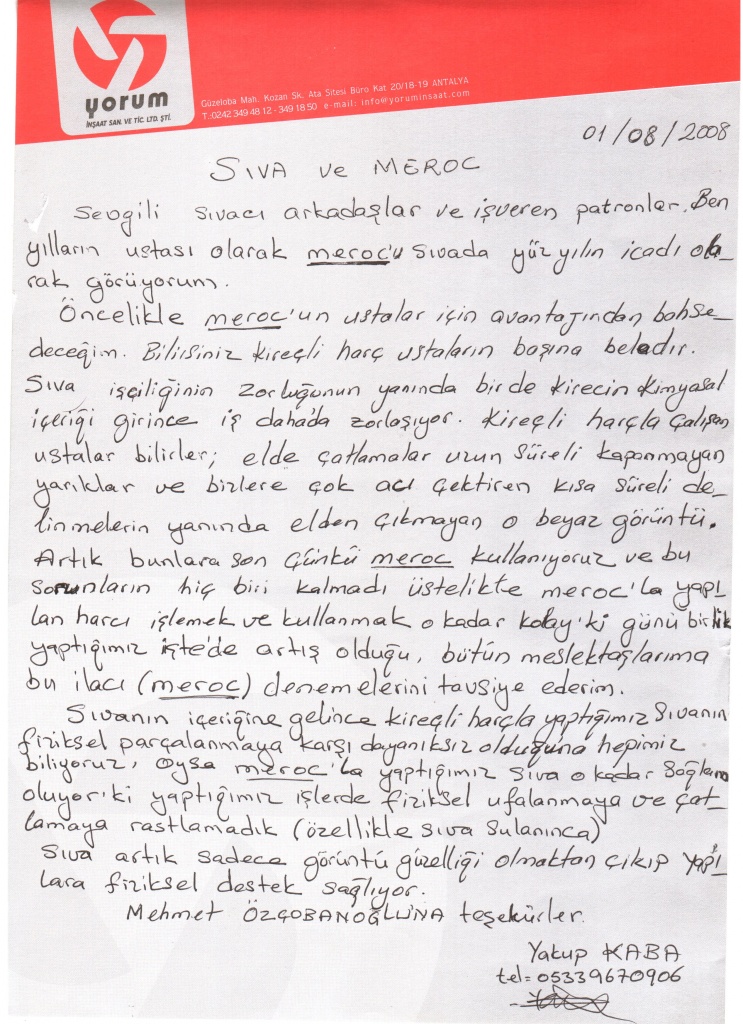 yorum
İNŞAAT SAN. VE TİC. LTD. ŞTİ.
Güzeloba Mah. Kozan Sk. Ata Sitesi Büro Kat 20/18-19 ANTALYA
T.:0242 349 48 12 - 349 18 50 e-mail: info@yoruminsaat.com
01/08/2008
SIVA ve MEROC
Sevgili sıvacı arkadaşlar ve işveren patronlar. Ben
yılların ustası olarak meroc'u sıvada yüz yılın icadı ola_
rak görüyorum.
Öncelikle meroc'un ustalar için avantajından bahse_
deceğim. Bilirsiniz kireçli harç ustaların başına beladır.
Sıva işçiliğinin zorluğunun yanında bir de kirecin kimyasal
içeriği girince iş daha'da zorlaşıyor. Kireçli harçla çalışan
ustalar bilirler; elde çatlamalar uzun süreli kapanmayan
yarıklar ve bizlere çok acı çektiren kısa süreli de_
linmelerin yanında elden çıkmayan o beyaz görüntü.
Artık bunlara son çünkü meroc kullanıyoruz ve bu
sorunların hiç biri kalmadı üstelikte meroc'la yapı
lan harcı işlemek ve kullanmak o kadar kolay'ki günü birlik
yaptığımız işte'de artış olduğu, bütün meslektaşlarıma
bu ilacı (meroc) denemelerini tavsiye ederim.
Sıvanın içeriğine gelince kireçli harçla yaptığımız sıvanın
fiziksel parçalanmaya karşı dayanıksız olduğuna hepimiz
biliyoruz, oysa meroc'la yaptığımız sıva o kadar sağlam
oluyor'ki yaptığımız işlerde fiziksel ufalanmaya ve çat_
lamaya rastlamadık (özellikle sıva sulanınca)
Sıva artık sadece görüntü güzelliği olmaktan çıkıp yapı
lara fiziksel destek sağlıyor.
Mehmet ÖZÇOBANOĞLU'NA teşekürler.
Yakup KABA
tel= 05339670906